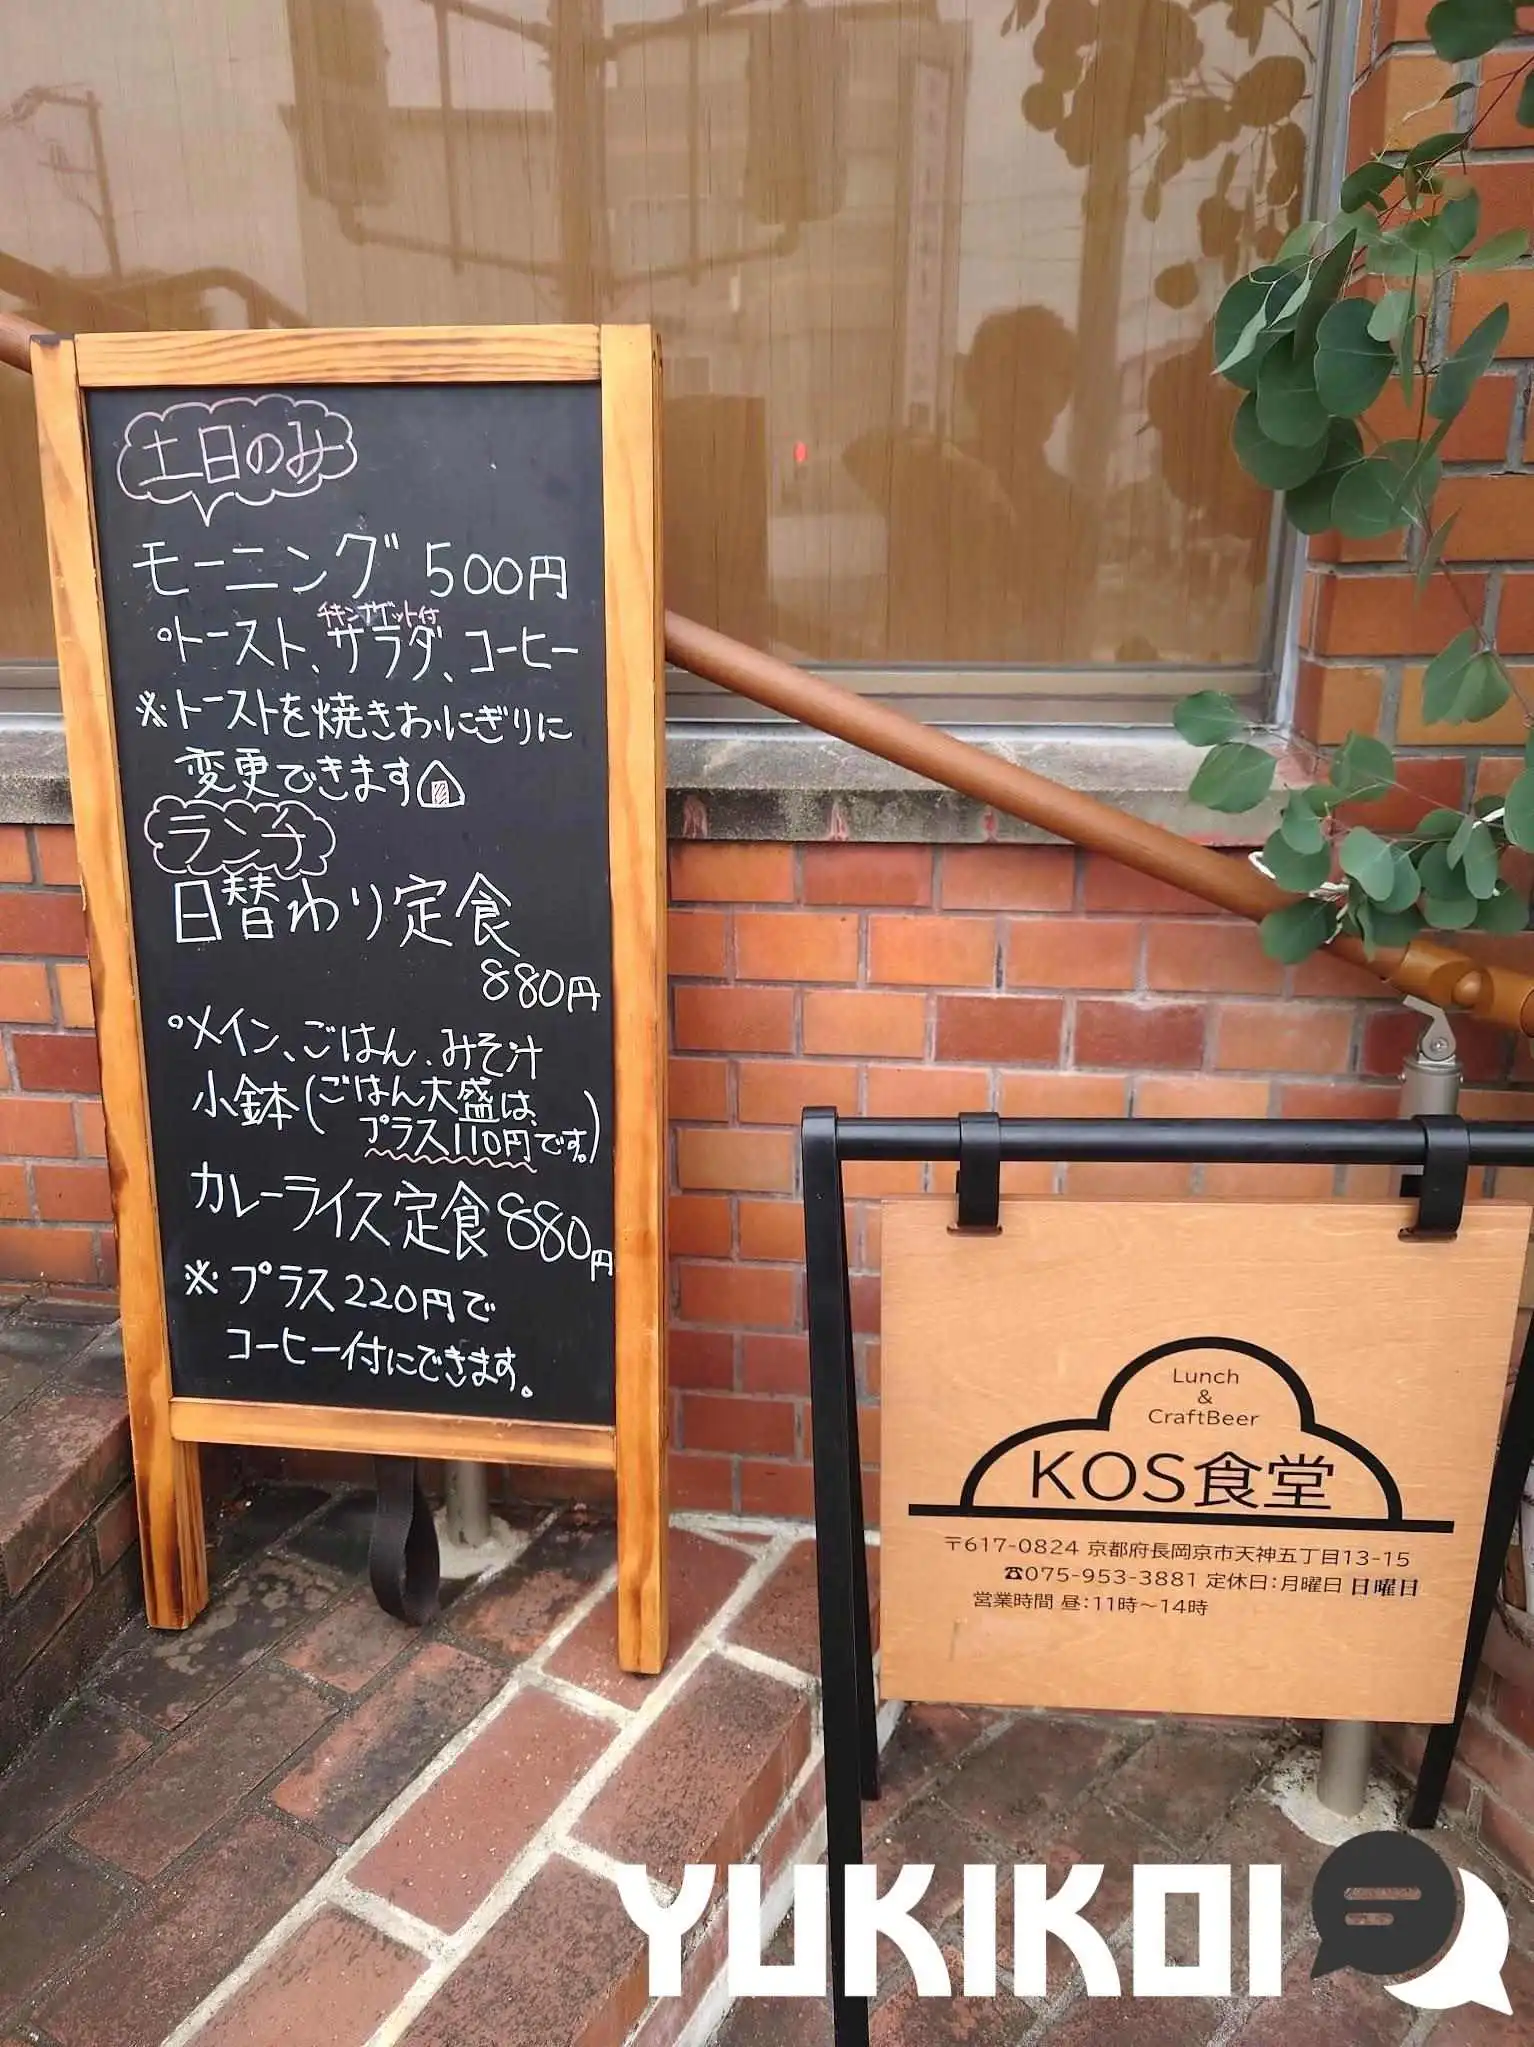 土日のみ
モーニング 500円
チキンナゲット付
°トースト、サラダ、コーヒー
※トーストを焼きおにぎりに
変更できます
ランチ
日替わり定食
880円
°メイン、ごはん、みそ汁
小鉢(ごはん大盛は、
プラス110円です。)
カレーライス定食 880円
※プラス220円で
コーヒー付にできます。
Lunch
&
CraftBeer
KOS食堂
〒617-0824 京都府長岡京市天神五丁目13-15
☎075-953-3881 定休日:月曜日 日曜日
営業時間 昼:11時~14時
YUKIKOI